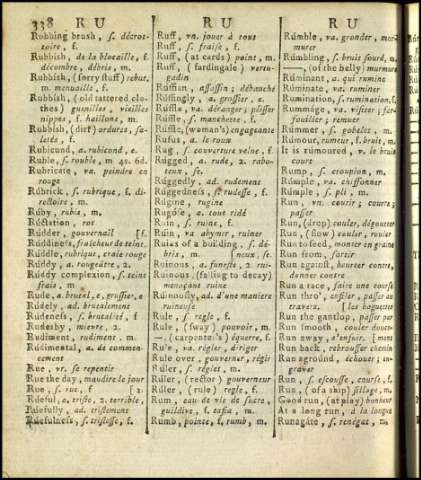 338 R U
R U
R U
Rubbing brush, s. décrot-
toire, f.
Rubbish, de la blocaille, f.
décombre, débris, m.
Rubbish, (sorry stuff) rebut,
m. menuaille, f.
Rubbish, (old tattered clo-
thes) guenilles, vieilles
nippes, f. haillons, m.
Rubbish, (dirt) ordures, sa-
letés, f.
Rubicund, a. rubicond, e.
Ruble, s. rouble, m. 4s. 6d.
Rubricate, va. peindre en
rouge
Rúbrick, s. rubrique, f. di-
rectoire, m.
Rúby, rubis, m.
Rúctation, rot
Rúdder, gouvernail [f.
Rúddiness, fraîcheur de teint,
Rúddle, rubrique, craie rouge
Rúddy, a. rougeâtre, 2.
Rúddy complexion, s. teint
frais, m
Rude, a. brutal, e. grossier, e
Rúdely, ad. brutalement
Rúdeness, s. brutalité, f
Rudesby, mievre, 2.
Rudiment, rudiment, m.
Rudiméntal, a. de commen-
cement
Rue, vr. se repentir
Rue the day, maudire le jour
Rue, s. rue, f [2
Rúeful, a. triste, 2. terrible,
Rúefully, ad. tristement
Rúefulness, s. tristesse, f.
Ruff, vn. jouer à tout
Ruff, s. fraise, f.
Ruff, (at cards) point, m.
Ruff, ( fardingale) vertu-
gadin
Rúffian, assassin; débauché
Rúffingly, a. grossier, e.
Rúffle, va. déranger; plisser
Rúffle, s. manchette, f.
Rúffle, (woman's) engageante
Rufus, a. le roux
Rug, s. couverture velue, f.
Rúgged, a. rude, 2. rabo-
teux, se.
Rúggedly, ad. rudement
Rúggedness, s. rudesse, f.
Rúgine, rugine
Rugóse, a. tout ridé
Ruin, s. ruine, f.
Ruin, va abymer, ruiner
Ruins of a building, s. dé-
bris, m. [neux, se.
Ruinous, a. funeste, 2. rui-
Ruinous, (falling to decay)
menaçant ruine
Rúinously, ad. d'une maniere
ruineuse
Rule, s. regle, f.
Rule, (sway) pouvoir, m.
—, (carpenter's) équerre, f.
Rule, va. régler, diriger
Rule over, gouverner, régir
Rúler, s. réglet, m.
Rúler, (rector) gouverneur
Rúler, (rule) regle, f.
Rum, eau de vie de sucre,
guildive, f. tafia, m.
Rumb, pointe, f. rumb, m.
Rúmble, va. gronder, mur-
murer
Rúmbling, s. bruit sourd, m.
——, (of the belly) murmure
Rúminant, a. qui rumine
Rúminate, va. ruminer
Rumination, s. rumination, f.
Rummage, va. visiter; far-
fouiller; remuer
Rúmmer, s. gobelet, m.
Rúmour, rumeur, f. bruit, m.
It is rumoured, v. le bruit
cours
Rump, s. croupion, m.
Rúmple, va. chiffonner
Rúmple, s. pli, m.
Run, vn. courir; courre;
passer
Run, (drop) couler, dégoutter
Run, (flow) couler, ruisler
Run to seed, monter en graine
Run from, sortir
Run against, heurter contre,
donner contre
Run a race, faire une course
Run thro', enfiler, passer au
travers, [les baguettes
Run the gantlop, passer par
Run smooth, couler doucement
Run away, s'enfuir, [ment
Run back, rebrousser chemin
Run aground, échouer; in-
graver
Run, s. escousse, course, f.
Run, (of a ship) sillage, m.
Good run, (at play) bonheur
At a long run, à la longue
Runagate, s. renégat, m.